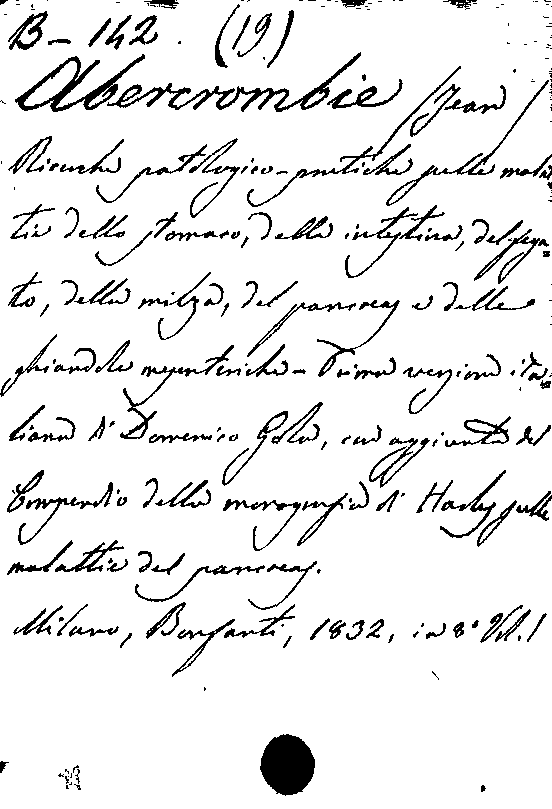 B - 142. (19)
Abercrombie (Jean)
Ricerche patologico-pratiche sulle malat
tie dello stomaco, delle intestina, del fega=
to, della milza, del pancreas e delle
ghiandole mesenteriche - Prima versione ita=
liana di Domenico Gola, con aggiunta del
Compendio della monografia di Harles sulle
malattie del pancreas.
Milano, Bonfanti, 1832, in 8° Vol. 1